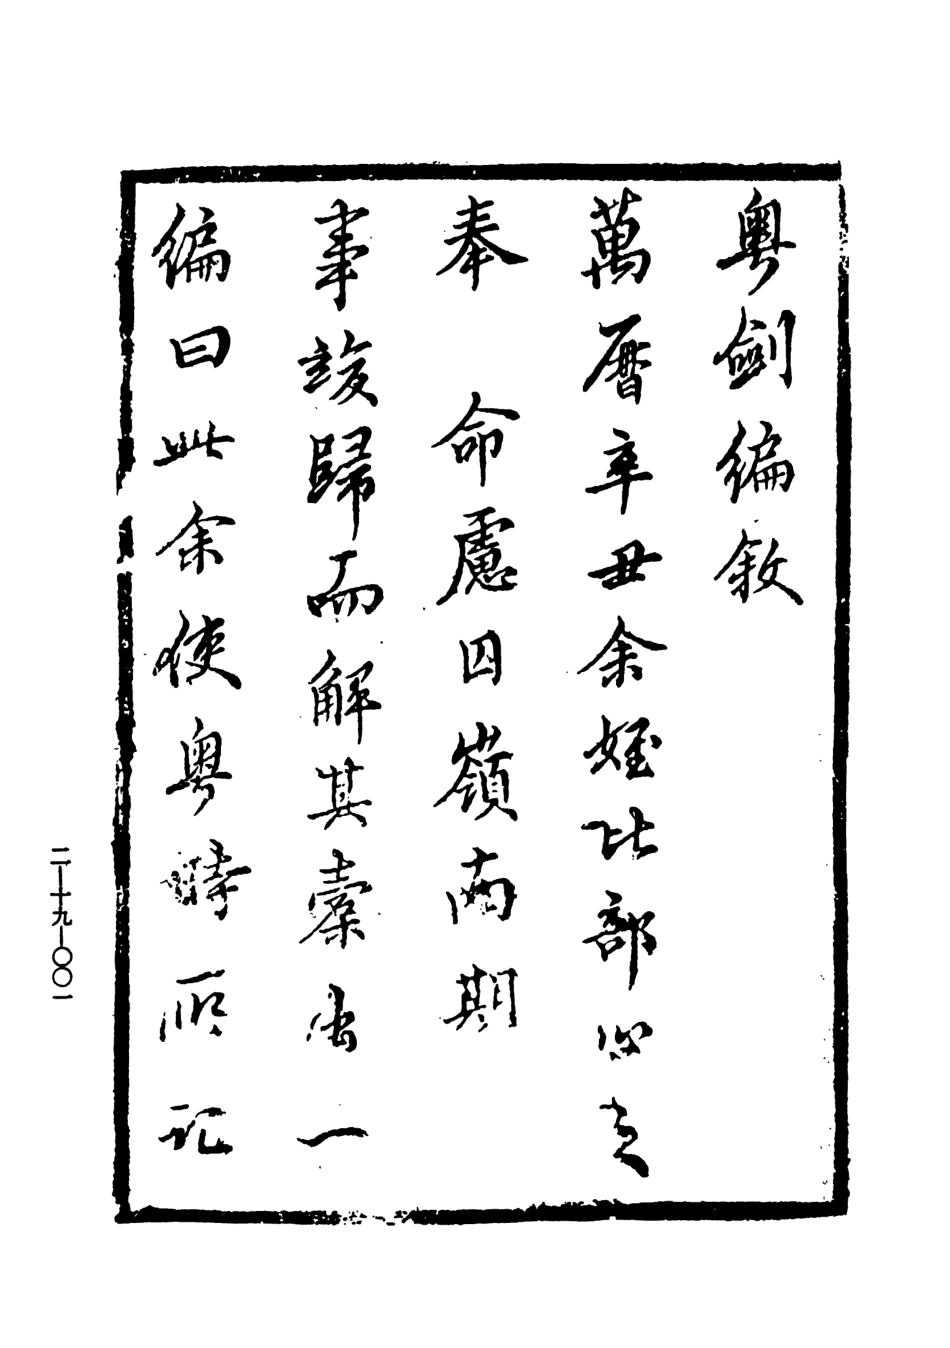 粵劍編敘
萬曆辛丑余姪比部
奉 命慮囚嶺南期
事竣歸而解其橐出一
編曰此余使粵時所記
二—十九—〇〇一